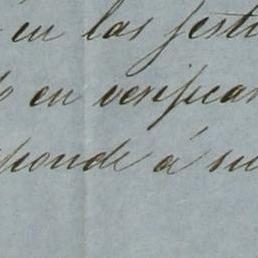 en las festi
en verificar
ponde á su